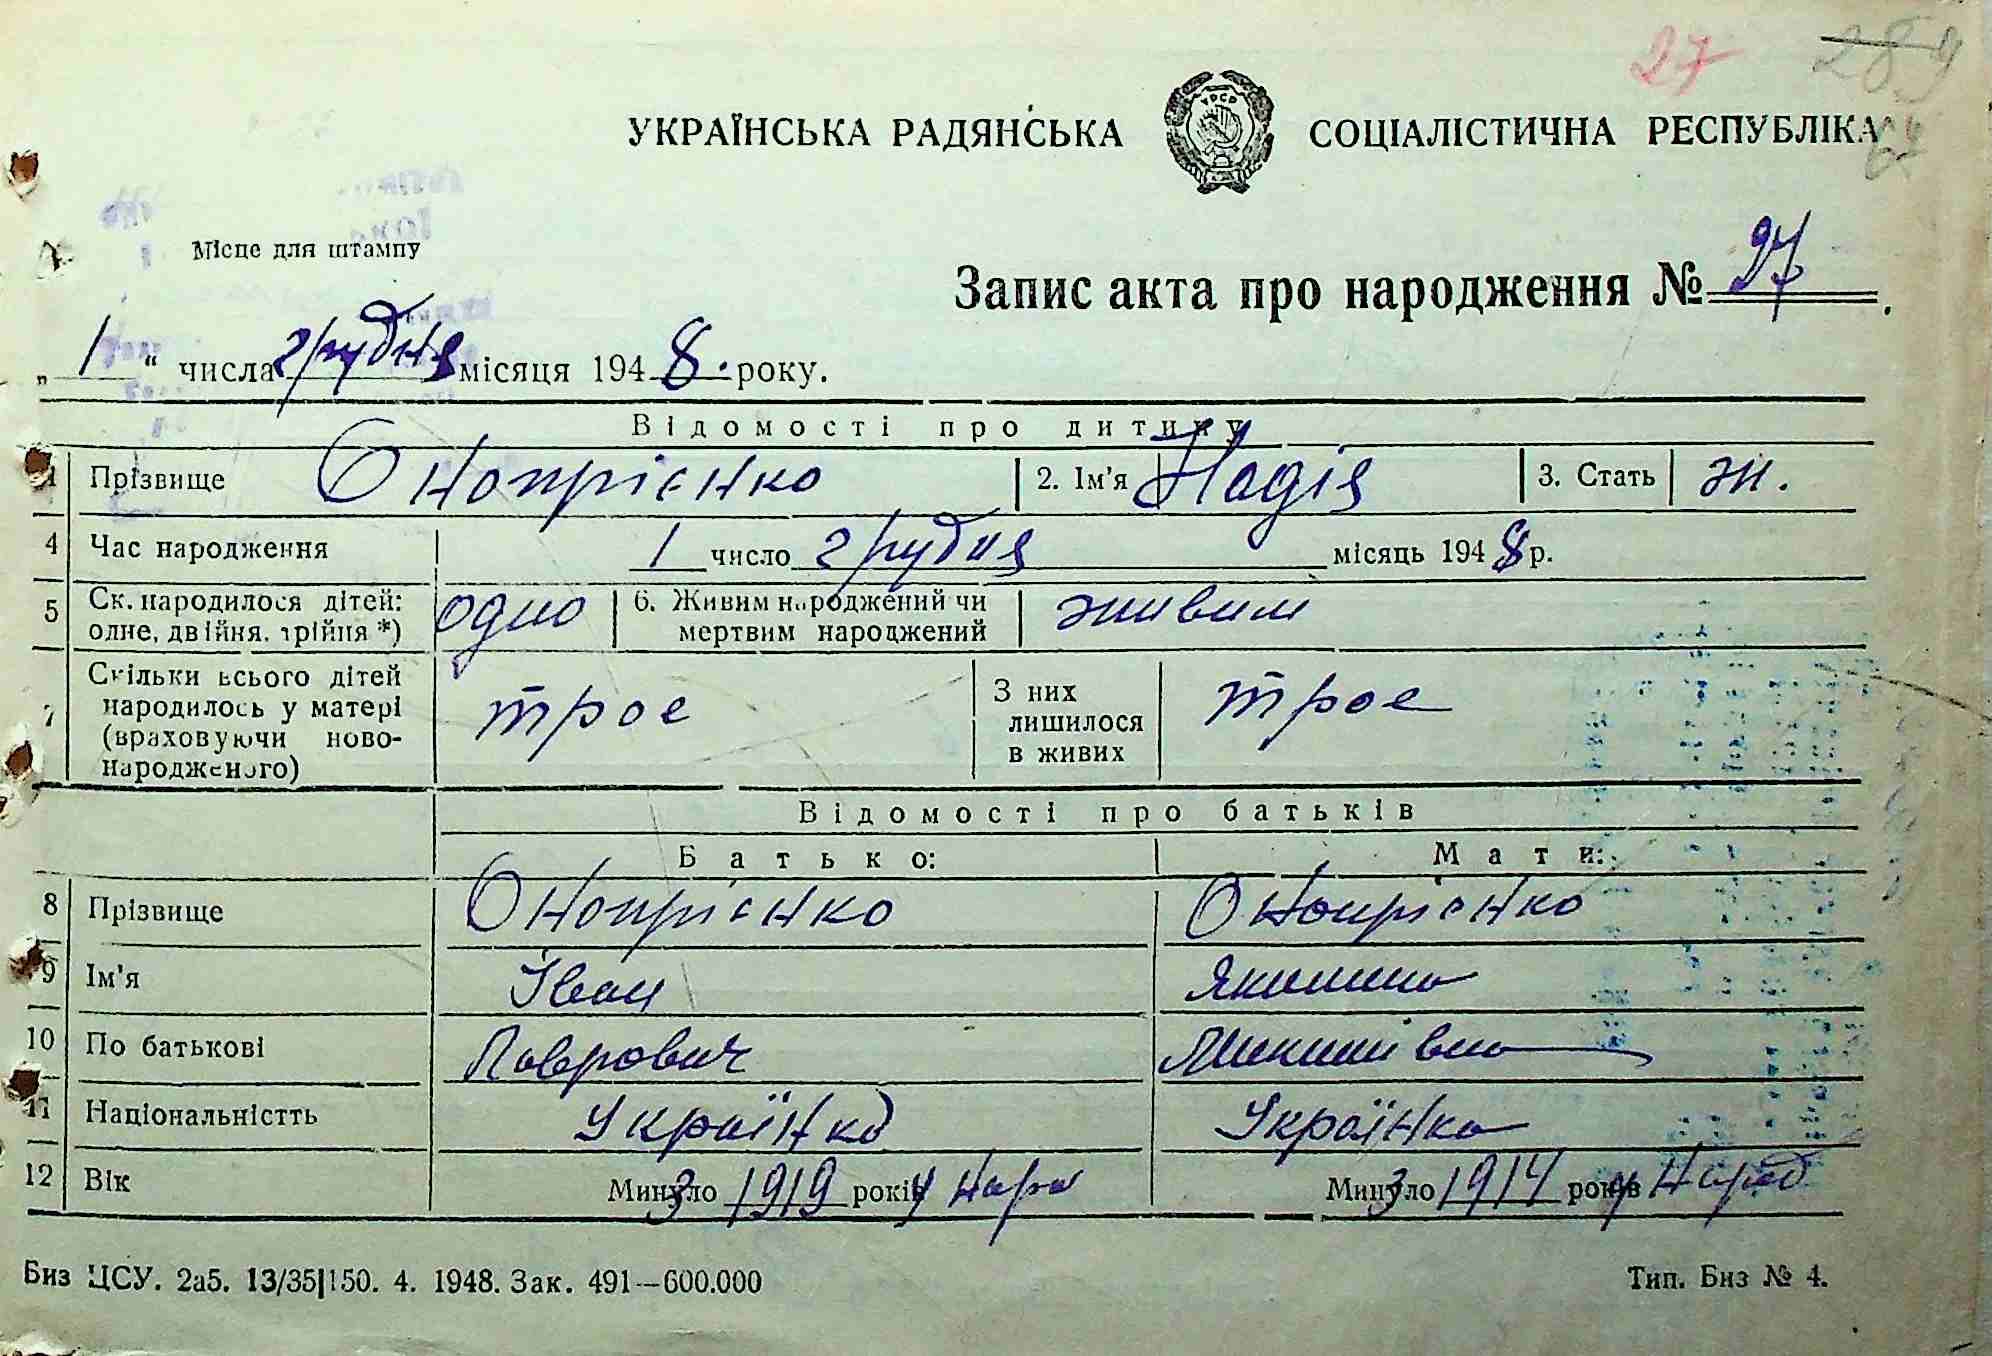 27 289
УКРАЇНСЬКА РАДЯНСЬКА СОЦІАЛІСТИЧНА РЕСПУБЛІКА
УРСР
67
Місце для штампу
Запис акта про народження № 27.
„1“ числа грудня місяця 1948. року.
Відомості про дитину
1 Прізвище Онопрієнко 2. Ім'я Надія 3. Стать ж.
4 Час народження 1 число грудня місяць 1948 р.
5 Ск. народилося дітей: одне, двійня, трійня *) одно 6. Живим народжений чи мертвим народжений живим
7 Скільки всього дітей народилось у матері (враховуючи новонародженого) троє З них лишилося в живих троє
Відомості про батьків
Батько: Мати:
8 Прізвище Онопрієнко Онопрієнко
9 Ім'я Іван Якилина
10 По батькові Лаврович
11 Національністть Українка
12 Вік Минуло З 1919 років у нар Минуло З 1914 років у народ
Биз ЦСУ. 2а5. 13/35|150. 4. 1948. Зак. 491—600.000 Тип. Биз № 4.